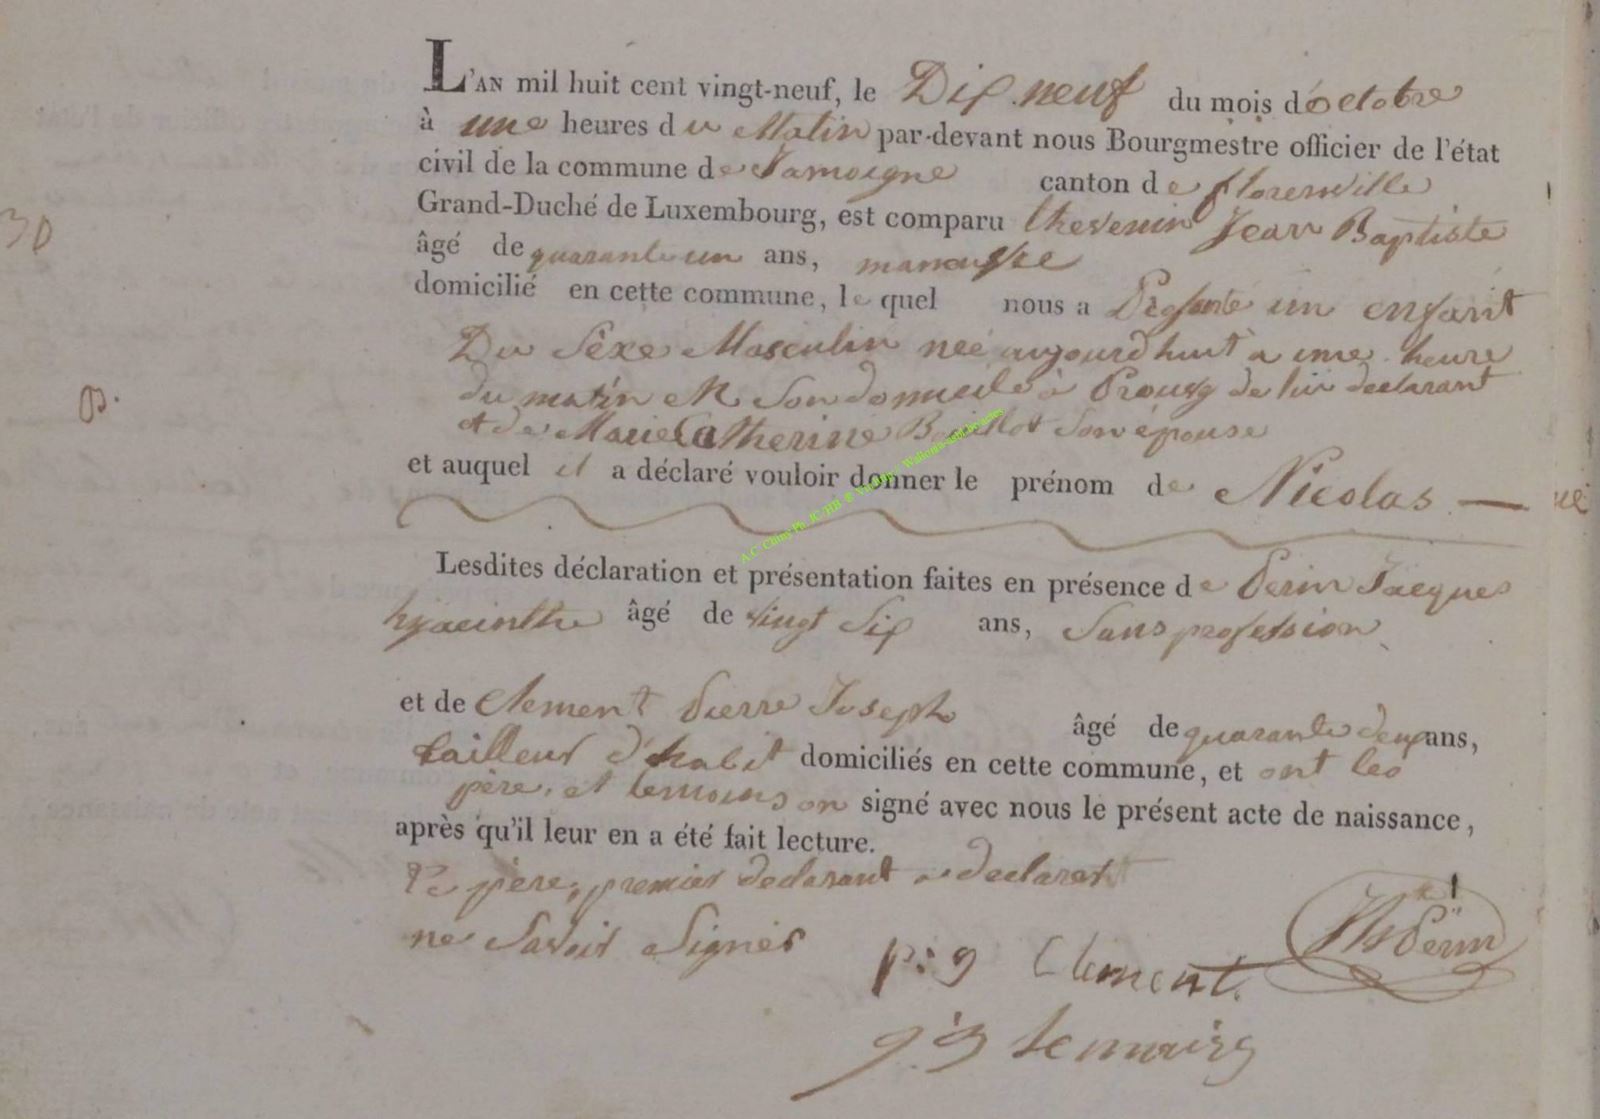 L'AN mil huit cent vingt-neuf, le Dix neuf du mois d'octobre
à une heures du Matin par-devant nous Bourgmestre officier de l'état
civil de la commune de Jamoigne canton de florenville
Grand-Duché de Luxembourg, est comparu thevenin Jean Baptiste
âgé de quarante un ans,
domicilié en cette commune, le quel nous a Presenté un enfant
Du Sêxe Masculin neé aujourd huit a une heure
du matin en Son domicile à Prouvy de lui declarant
et de Marie Catherine Son épouse
et auquel il a déclaré vouloir donner le prénom de Nicolas
Lesdites déclaration et présentation faites en présence de Perin Jacques
hyacinthe âgé de vingt Six ans, Sans profession
et de Clement Pierre Joseph âgé de quarante deux ans,
tailleur d'habit domiciliés en cette commune, et ont les
père, et temoins on signé avec nous le présent acte de naissance,
après qu'il leur en a été fait lecture.
Le père, premier declarant a declarer
ne Savoir Signer
p: j Clement
Perin
30